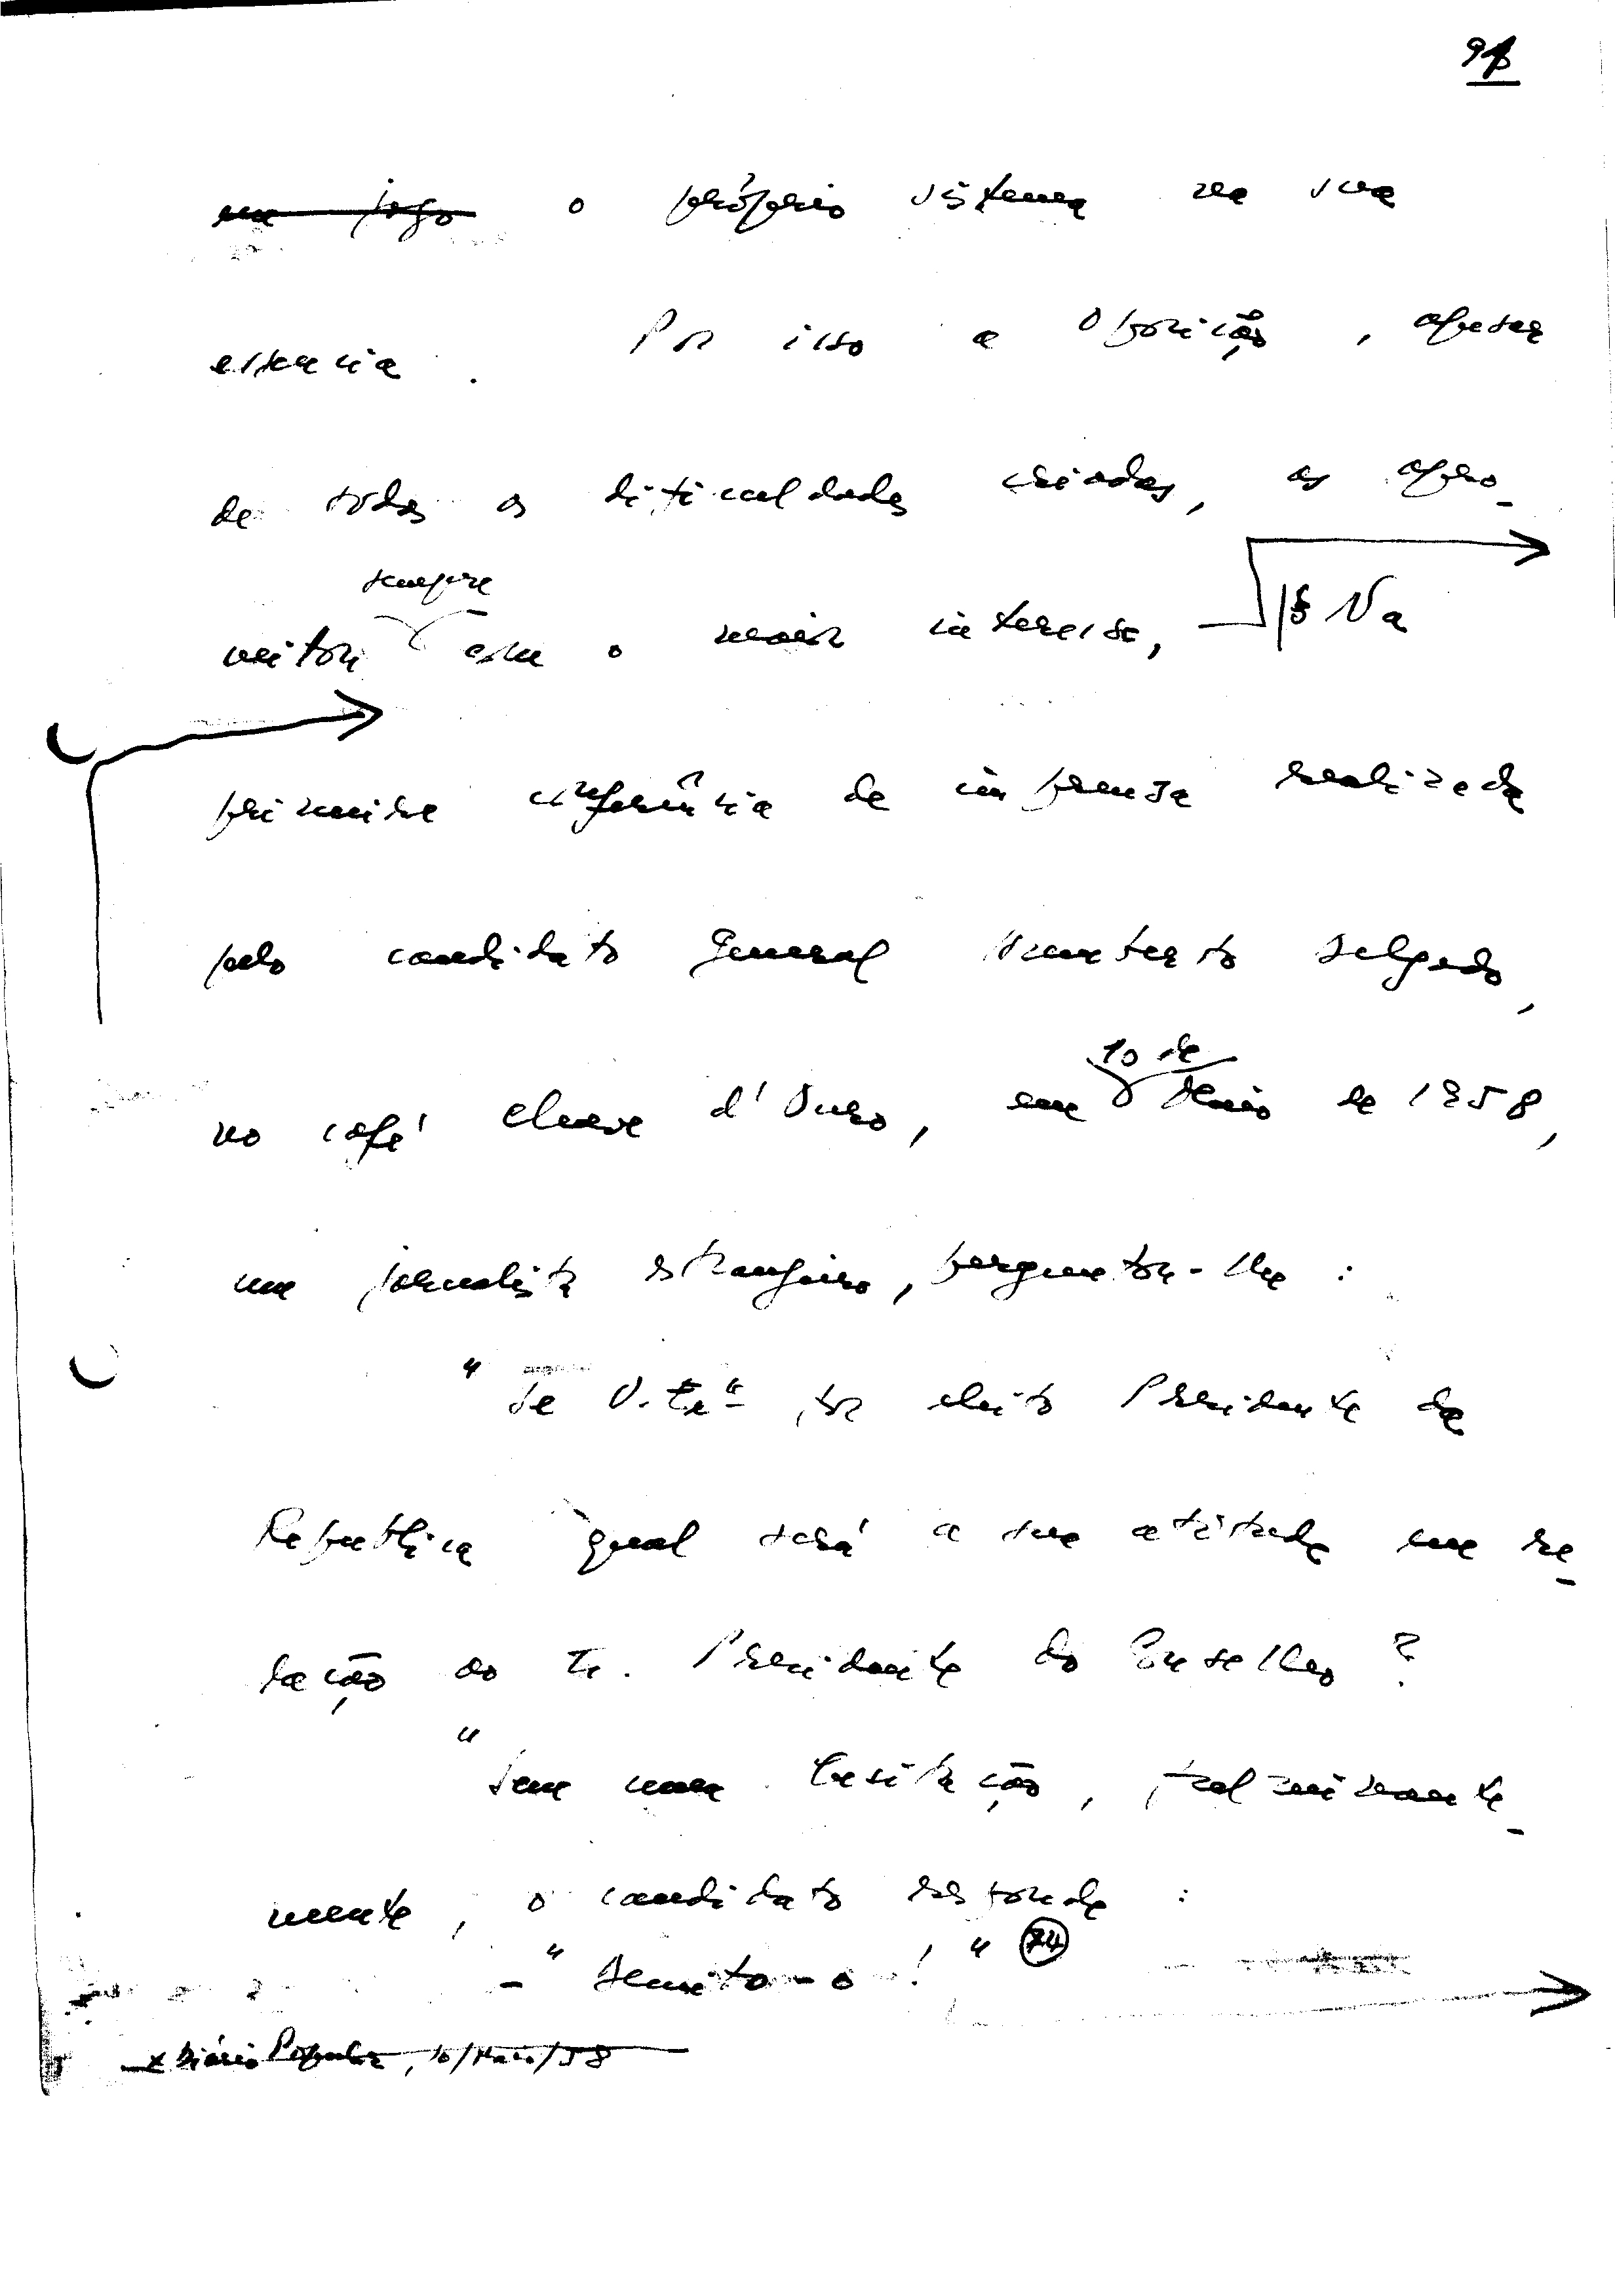 em jogo o próprio sistema na sua
essencia. Por isso a Oposição, apesar
de todas as dificuldades criadas, as apro-
sempre
veitou com o maior interesse, Na
primeira conferência de imprensa realizada
pelo candidato General Humberto Delgado,
no café Chave d'Ouro, em
10 de
Maio de 1958,
um jornalista estrangeiro, perguntou-lhe:
"Se V. Exª for eleito Presidente da
República qual será a sua atitude em re-
lação ao Sr. Presidente do Conselho?
"Sem uma hesitação, fulminante-
mente, o candidato responde:
- "Demito-o!" 74
x Diário Popular, 10/Maio/58